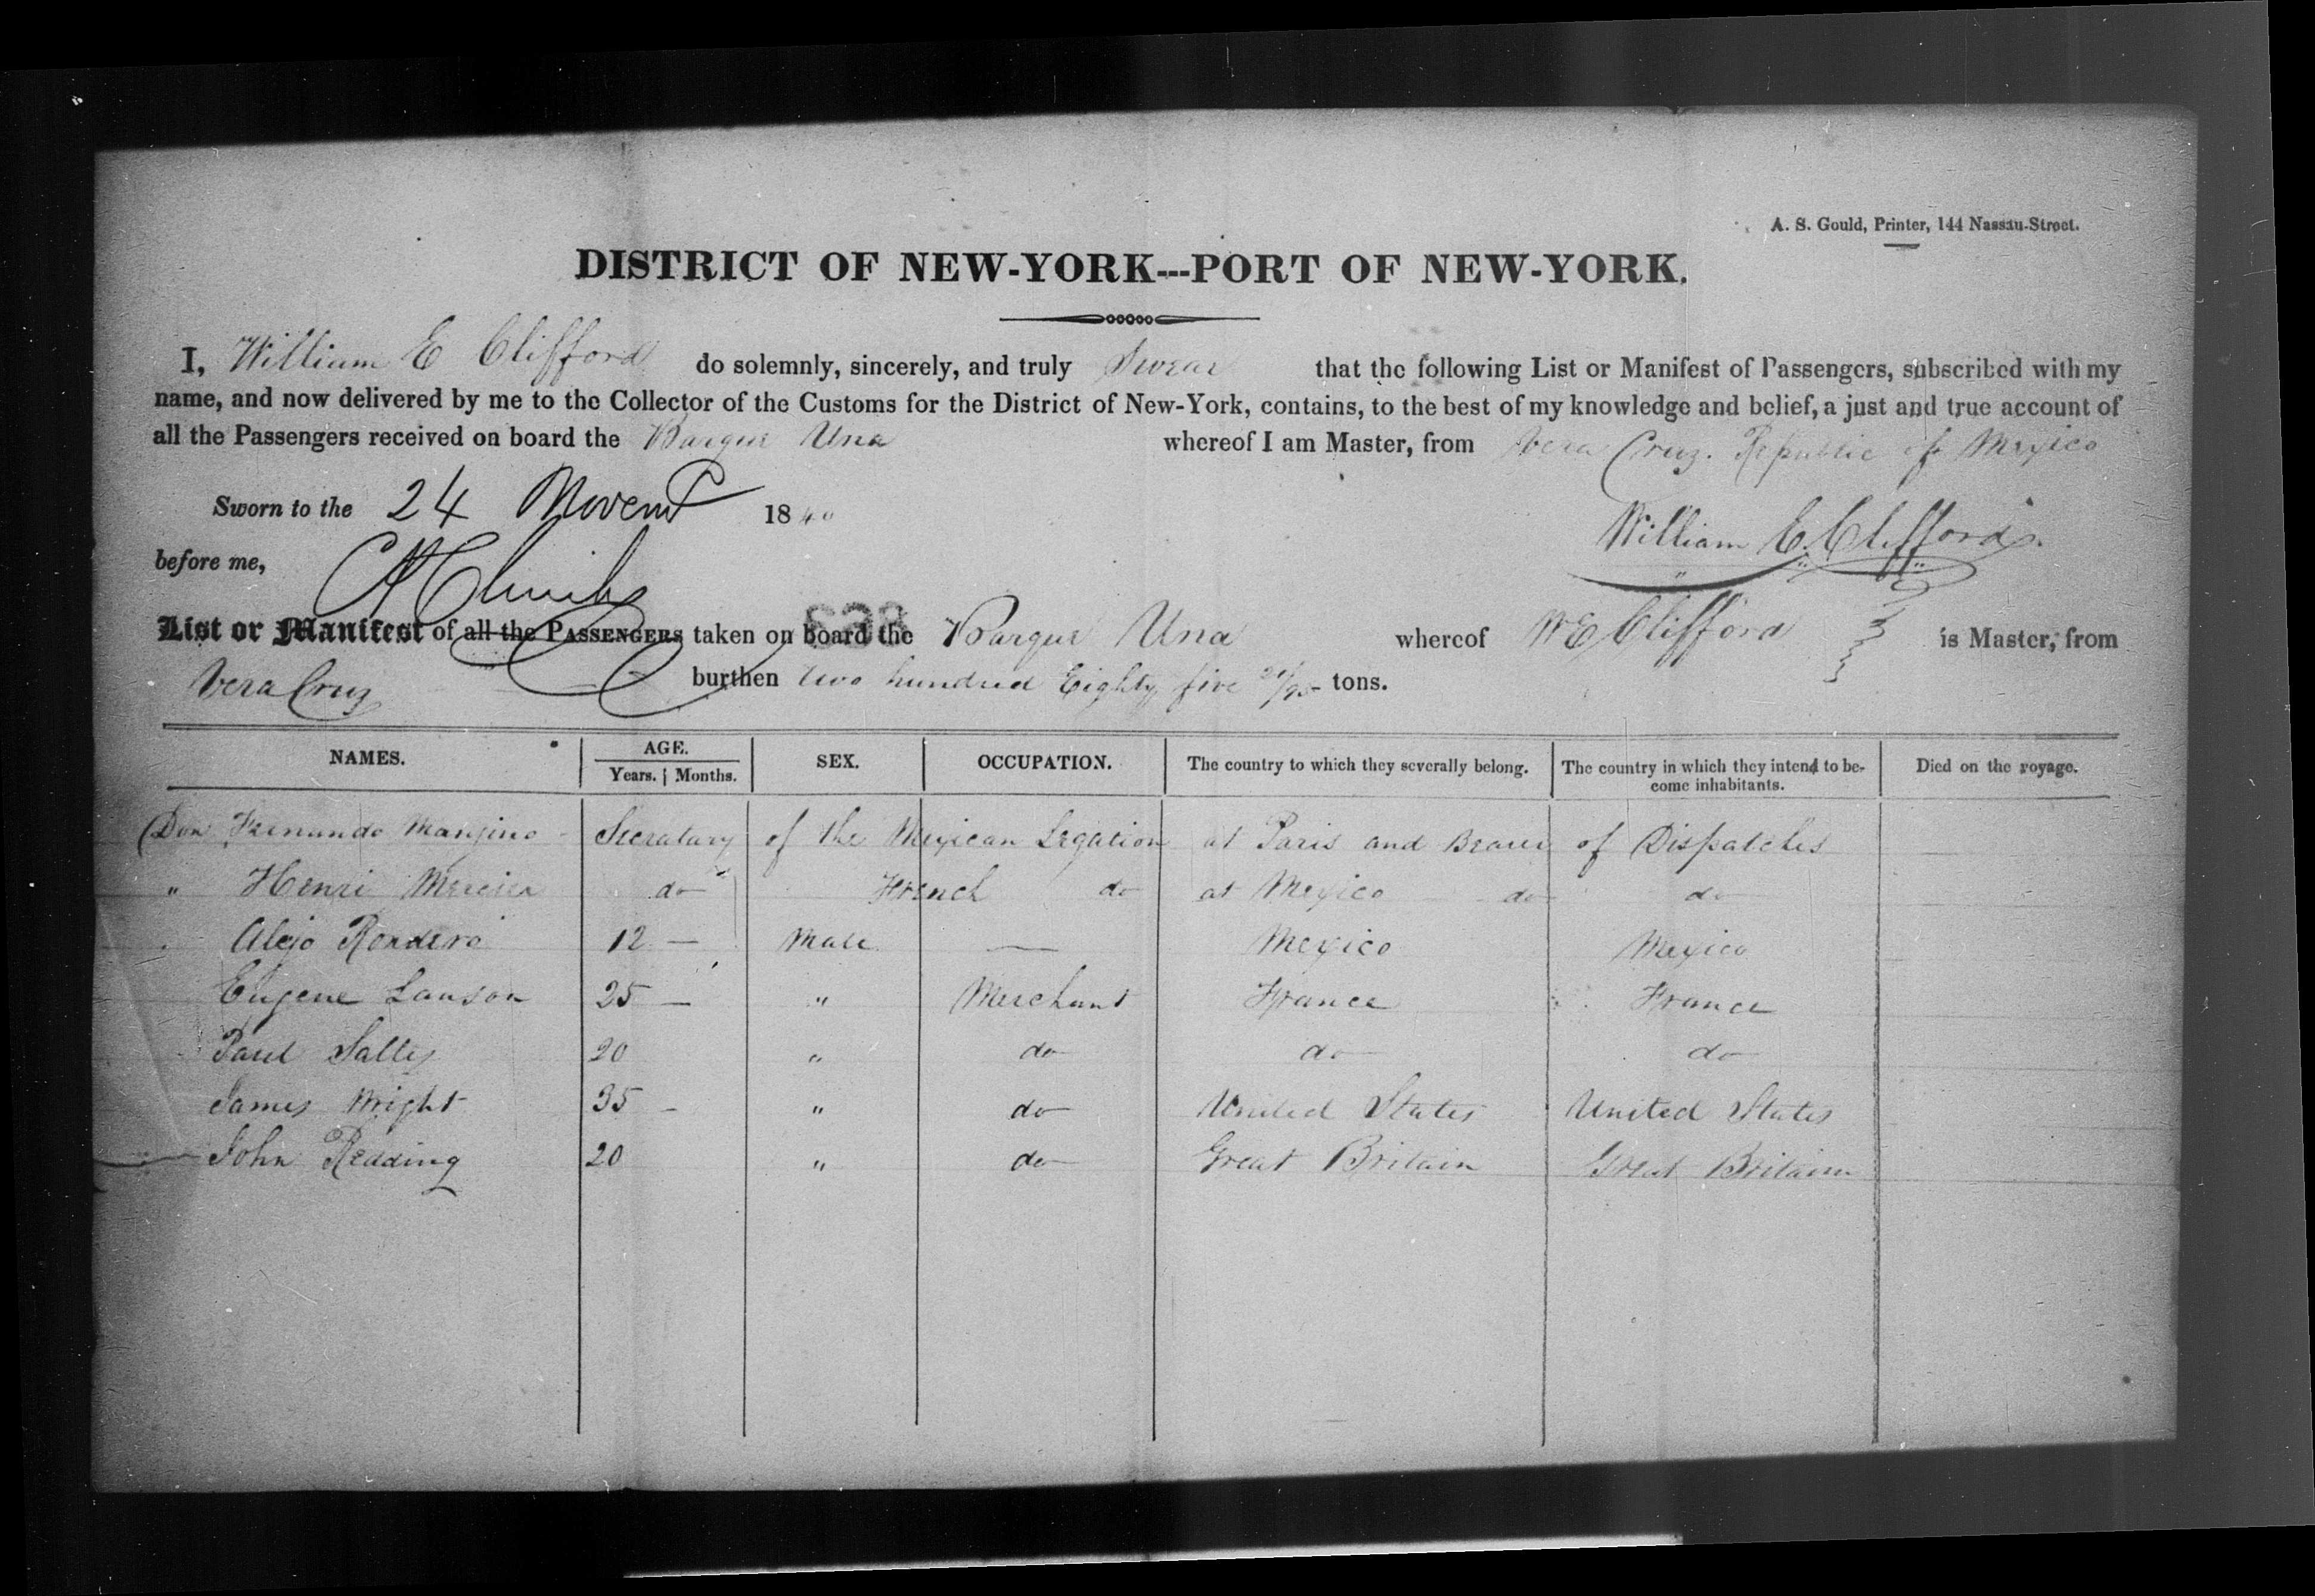 A. S. Gould, Printer, 144 Nassau-Street.
DISTRICT OF NEW-YORK---PORT OF NEW-YORK.
I, William E Clifford do solemnly, sincerely, and truly Swear that the following List or Manifest of Passengers, subscribed with my
name, and now delivered by me to the Collector of the Customs for the District of New-York, contains, to the best of my knowledge and belief, a just and true account of
all the Passengers received on board the Barque Una whereof I am Master, from Vera Cruz. Republic of Mexico
Sworn to the 24 Novem 1840
William E. Clifford
before me,
List or Manifest of all the PASSENGERS taken on board the Barque Una whereof W E Clifford is Master, from
Vera Cruz burthen two hundred Eighty five 21/95 tons.
NAMES. AGE. SEX. OCCUPATION. The country to which they severally belong. The country in which they intend to be-
Years. Months. come inhabitants. Died on the voyage.
Don Fernando Mangino Secratary of the Mexican Legation at Paris and Bearer of Dispatches
" Henri Mercier do French do at Mexico do do
Alejo Rondero 12 — Male — Mexico Mexico
Eugene Lauson 25 — " Merchant France France
Paul Salles 20 " do do do
James Wright 35 - " do United States United States
John Redding 20 " do Great Britain Great Britain